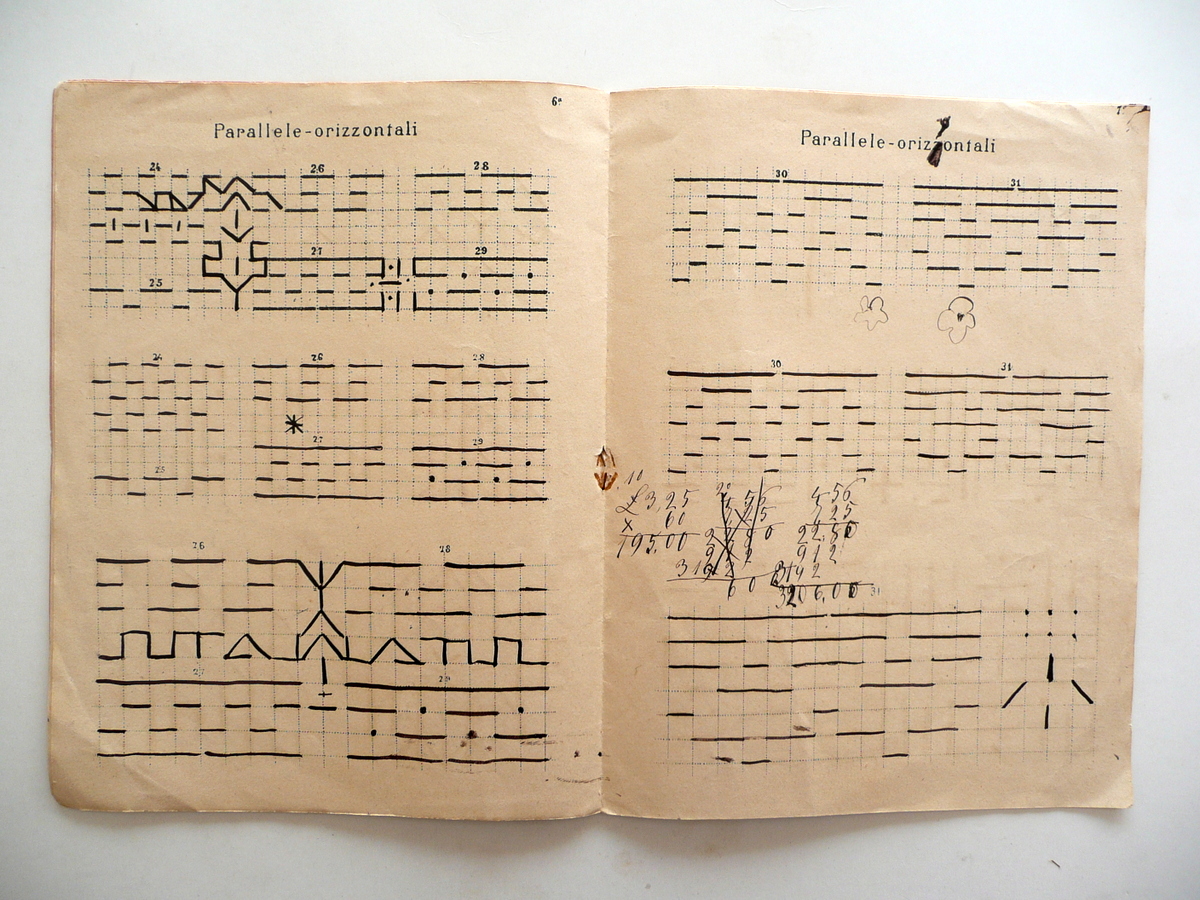 6ª
Parallele-orizzontali
24 26 28
27 29
25
24 26 28
27 29
25
26 28
27 29
Parallele-orizzontali
30 31
30 31
10
£3,25
x 60
195,00
456
725
2280
912
3192
3206,00
31